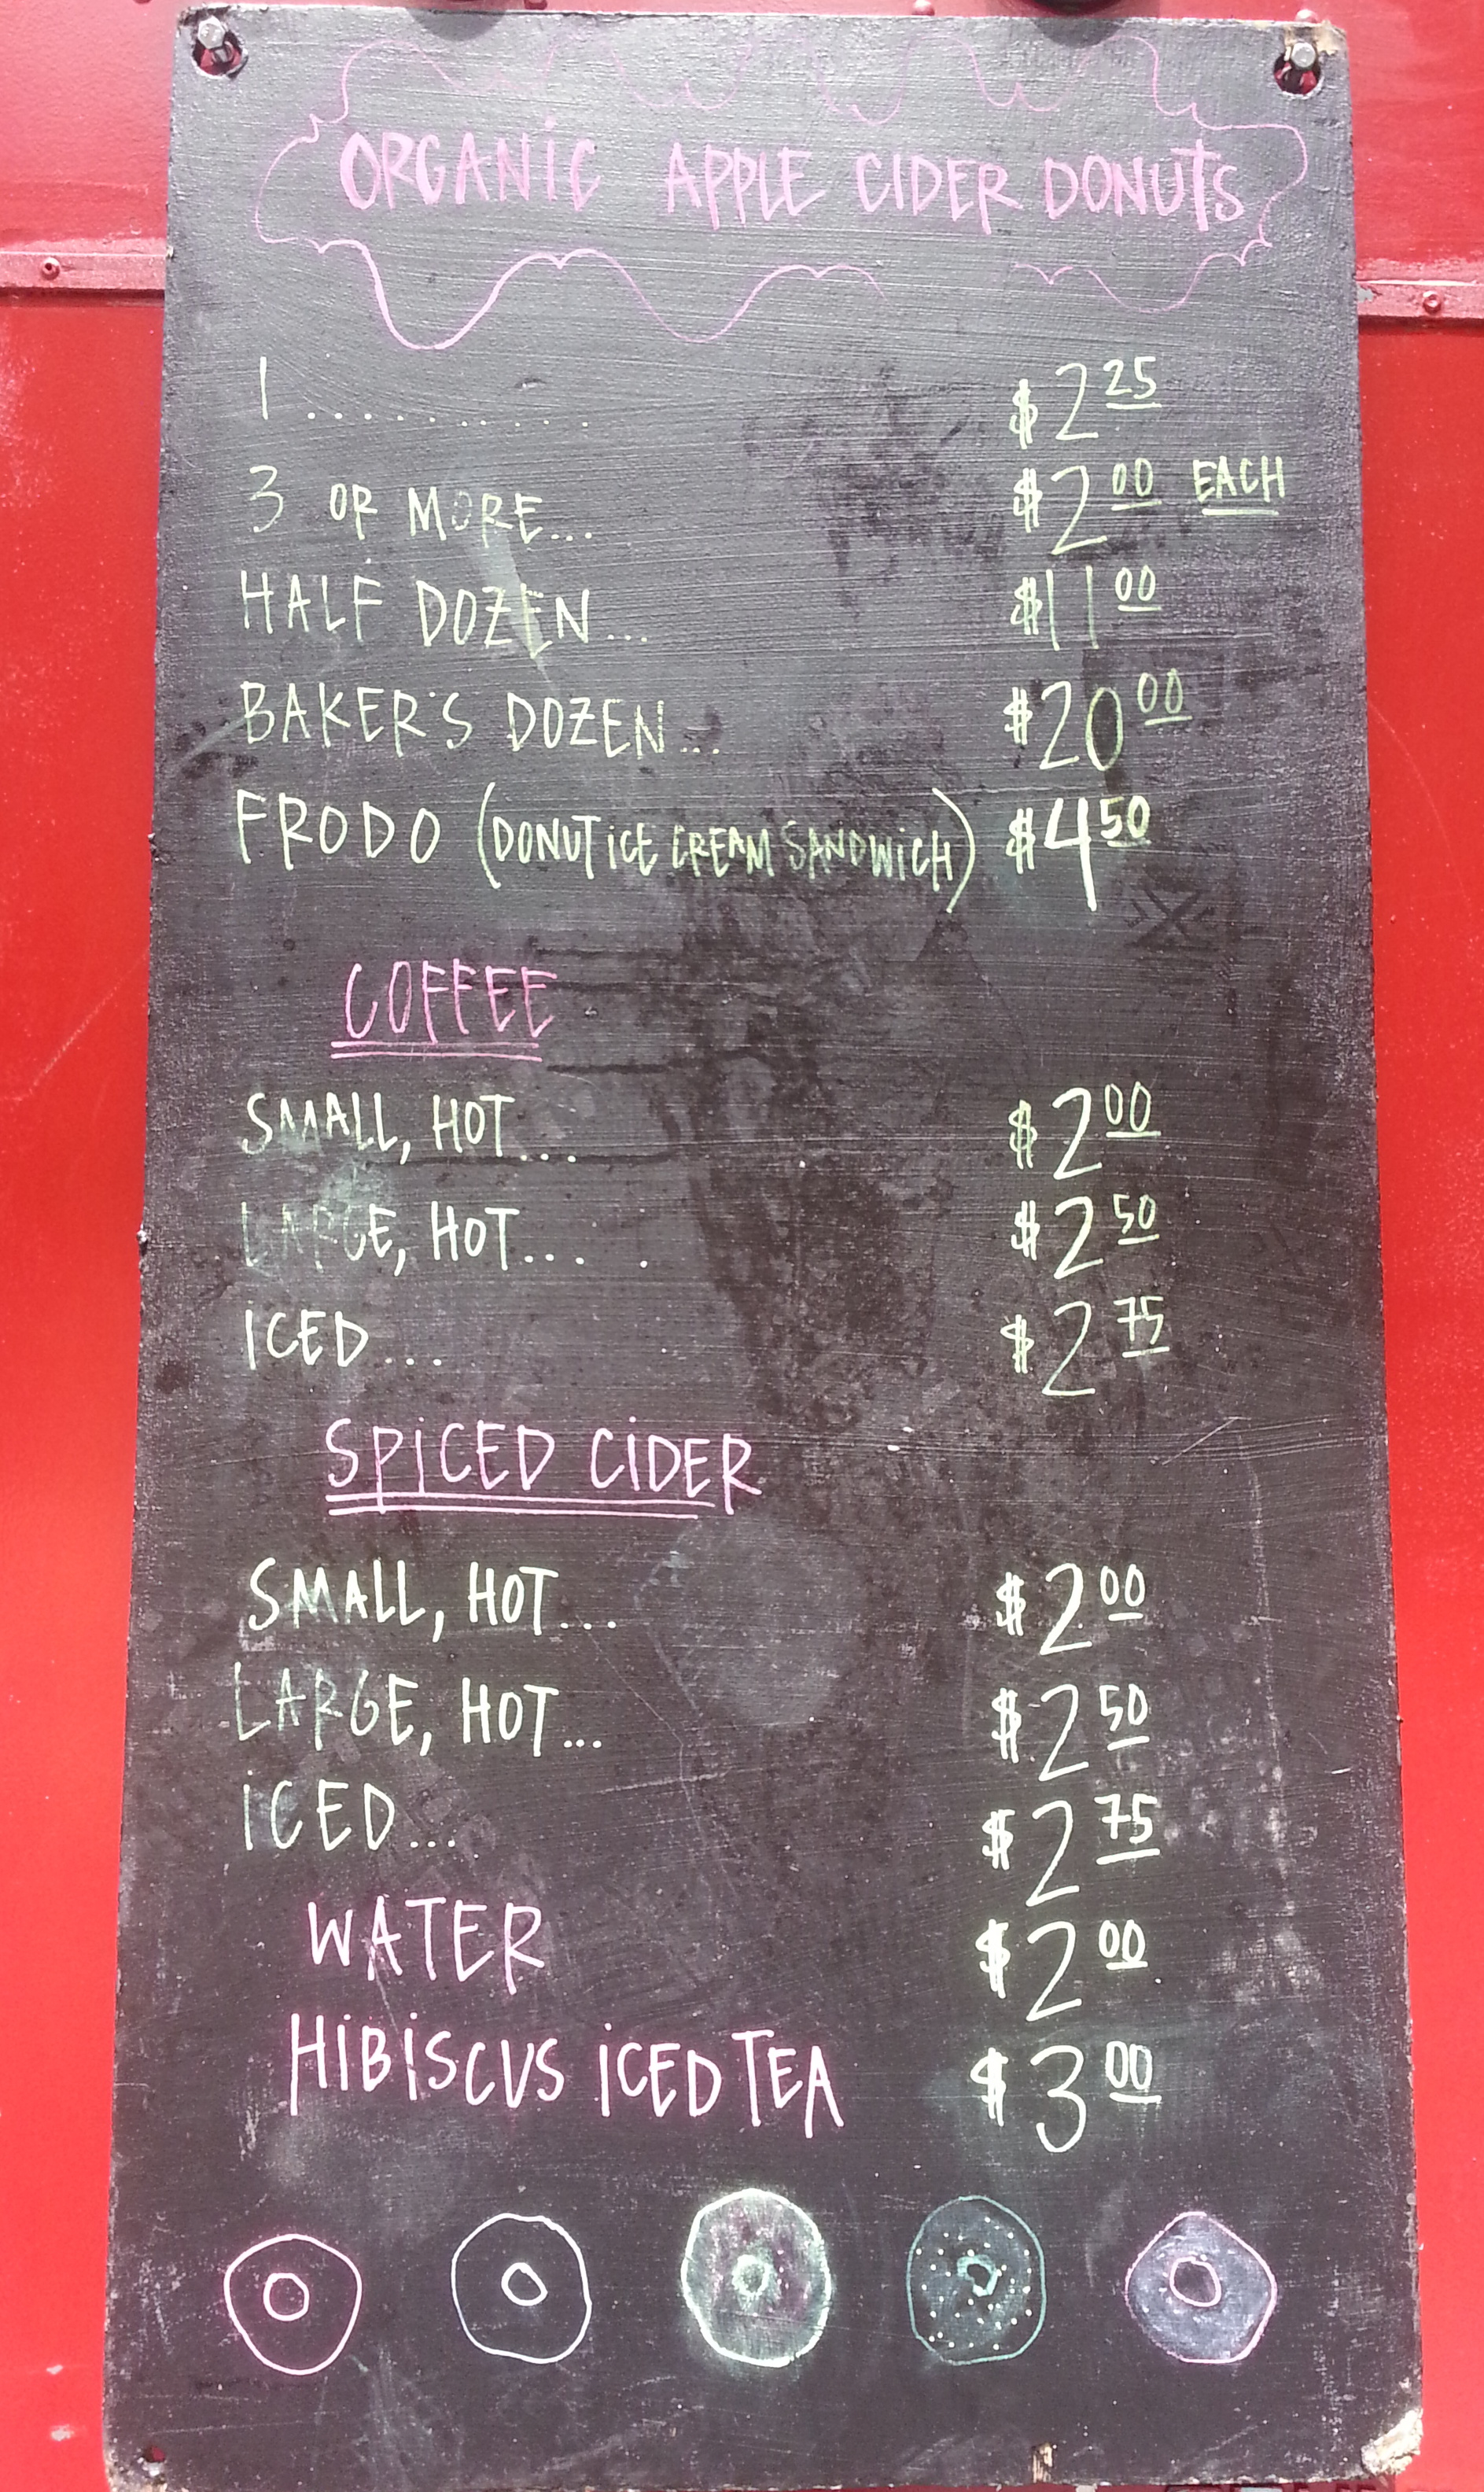 ORGANIC APPLE CIDER DONUTS
1............ $2.25
3 OR MORE... $2.00 EACH
HALF DOZEN... $11.00
BAKER'S DOZEN... $20.00
FRODO (DONUT ICE CREAM SANDWICH) $4.50
COFFEE
SMALL, HOT... $2.00
LARGE, HOT.... $2.50
ICED... $2.75
SPICED CIDER
SMALL, HOT... $2.00
LARGE, HOT... $2.50
ICED... $2.75
WATER $2.00
HIBISCUS ICED TEA $3.00